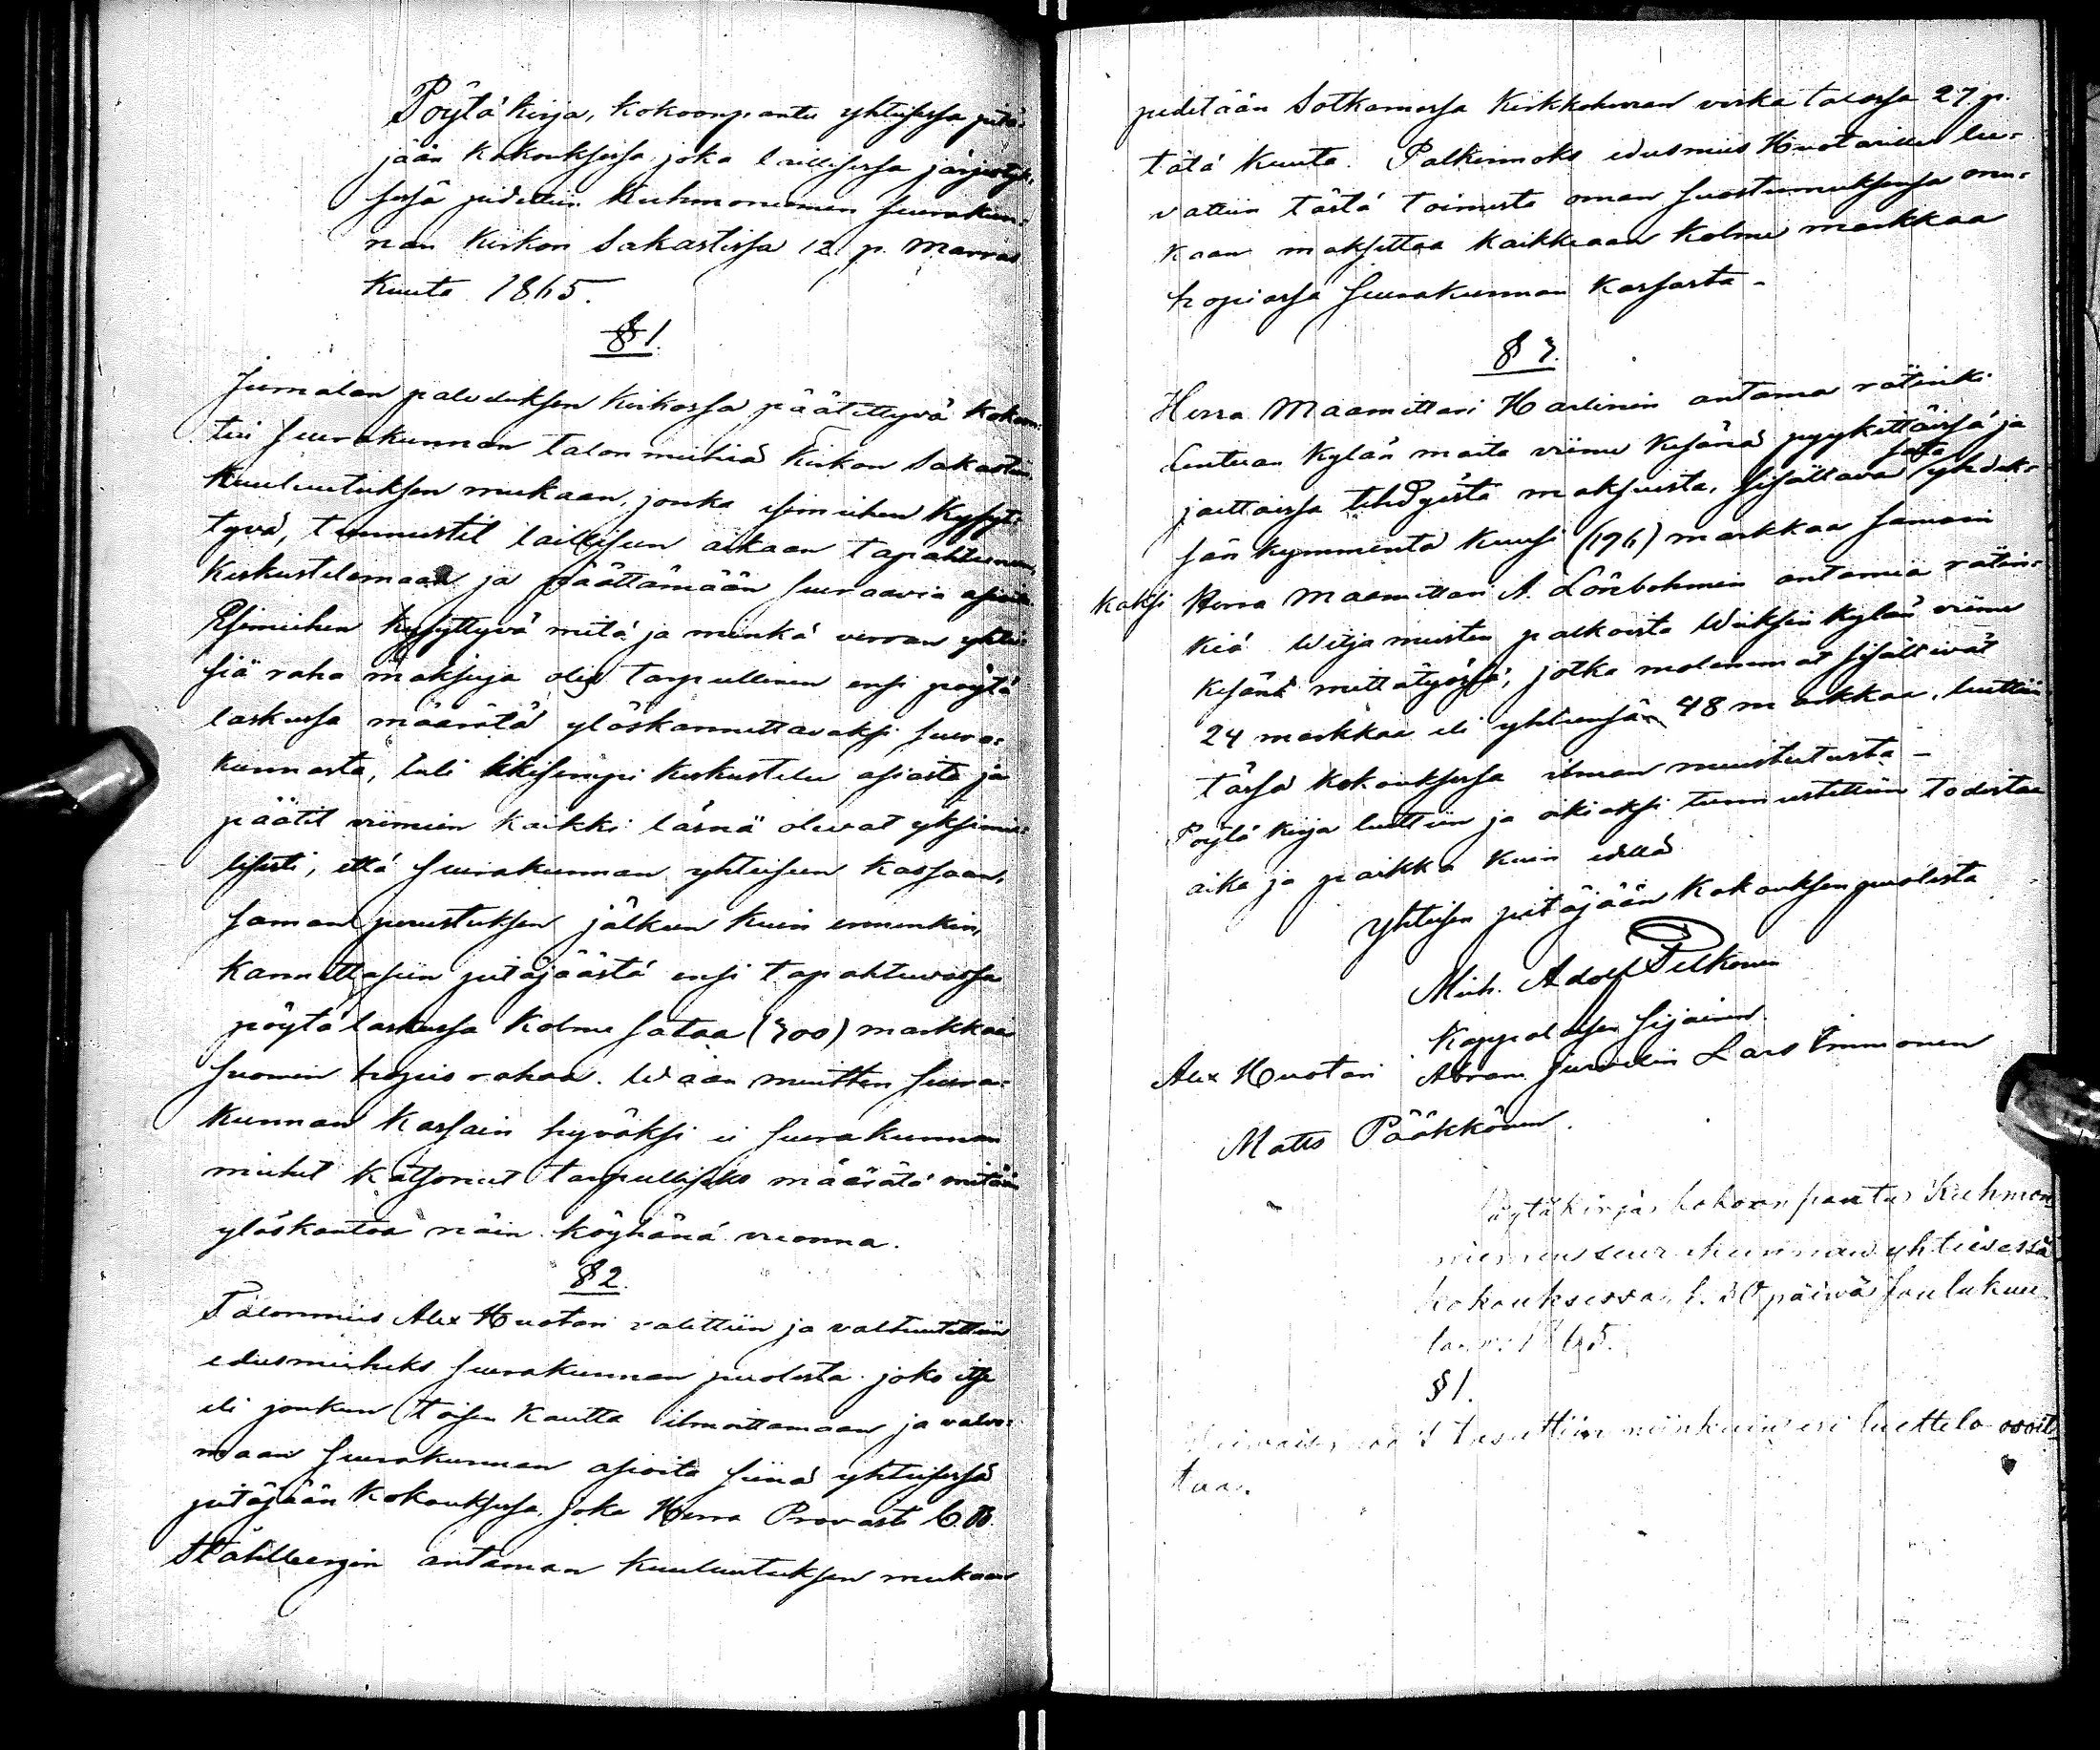 Pöytä kirja, kokoonpantu yhteisessa pitä-
jään kokouksessa, joka laillisessa järjestyk-
sessä pidettiin Kuhmoniemen seurakun-
nan kirkon Sakastissa 12 p. Marras
kuuta 1865.
§ 1.
Jumalan paluduksen kirkossa päätettyvä kokoon-
tui seurakunnan talon miehiä kirkon sakastiin,
kuuluutuksen mukaan, jonka esimiehen kysyt-
tyvä, tunnustit lailliseen aikaan tapahtuneen,
keskustelemaan ja päättämään seuraavia asioita.
Esimiehen kysyttyvä mitä ja minkä verran yhtei-
siä raha maksuja olisi tarpeellinen ensi pöytä
laskussa määrätä ylöskannettavaksi seura-
kunnasta, tuli likisempi keskustelu asiasta ja
päätit viimein kaikki läsnä olevat yksimie-
lisesti, että seurakunnan yhteiseen kassaan,
saman perustuksen jälkeen kuin ennenkin,
kannettasiin pitäjäästä ensi tapahtuvassa
pöytä laskussa kolme sataa (300) markkaa
Suomen hopia rahaa. Waan muitten seura-
kunnan kassain hyväksi ei seurakunnan
miehet katsoneet tarpeelliseks määrätä mitään
ylöskantoa näin köyhänä vuonna.
§ 2.
Talonmies Alex Huotari valittiin ja valtuutettiin
edusmieheks seurakunnan puolesta joko itse
eli jonkun toisen kautta ilmoittamaan ja valvo-
maan seurakunnan asioita siinä yhteisessä
pitäjään kokouksessa, joka Herra Provasti C. B.
Ståhlbergin antaman kuuluutuksen mukaan
pidetään Sotkamossa Kirkkoherran virka talossa 27. p.
tätä kuuta. Palkinnoks edusmies Huotarille lu-
vattiin tästä toimesta oman suostumuksensa mu-
kaan maksettaa kaikkiaan kolme markkaa
hopiassa seurakunnan kassasta -
§ 3.
Herra Maamittari Harlinin antama rätinki
Lentuan kylän maita viime kesänä pyykittäissä ja
jaettaissa tehdyistä maksuista, sisältävä sata yhdek-
sän kymmentä kuusi (196) markkaa samoin
kaksi Herra Maamittari A. Lönbohmin antamia rätin-
kiä Witjamiesten palkoista Wieksin kylän viime
kesänä mittätyössä, jotka molemmat sisältivät
24 markkaa eli yhteensä 48 markkaa, luettiin
tässä kokouksessa ilman muistutusta -
Pöytä kirja luettiin ja oikiaksi tunnustettiin todistaa
aika ja paikka kuin edellä
Yhteisen pitäjään Kokouksen puolesta
Mich. Adolf Pelkonen
Kappalaisen sijainen.
Alex Huotari Abram Juntin Lars Immonen
Matts Pääkkönen.
Pöytäkirja, kokoonpantu Kuhmon-
niemen seurakunnan yhteisessä
kokouksessa, 30 päivä Joulukuu-
1865.
§ 1.
tasattiin niinkuin eri luettelo osoit-
taa.